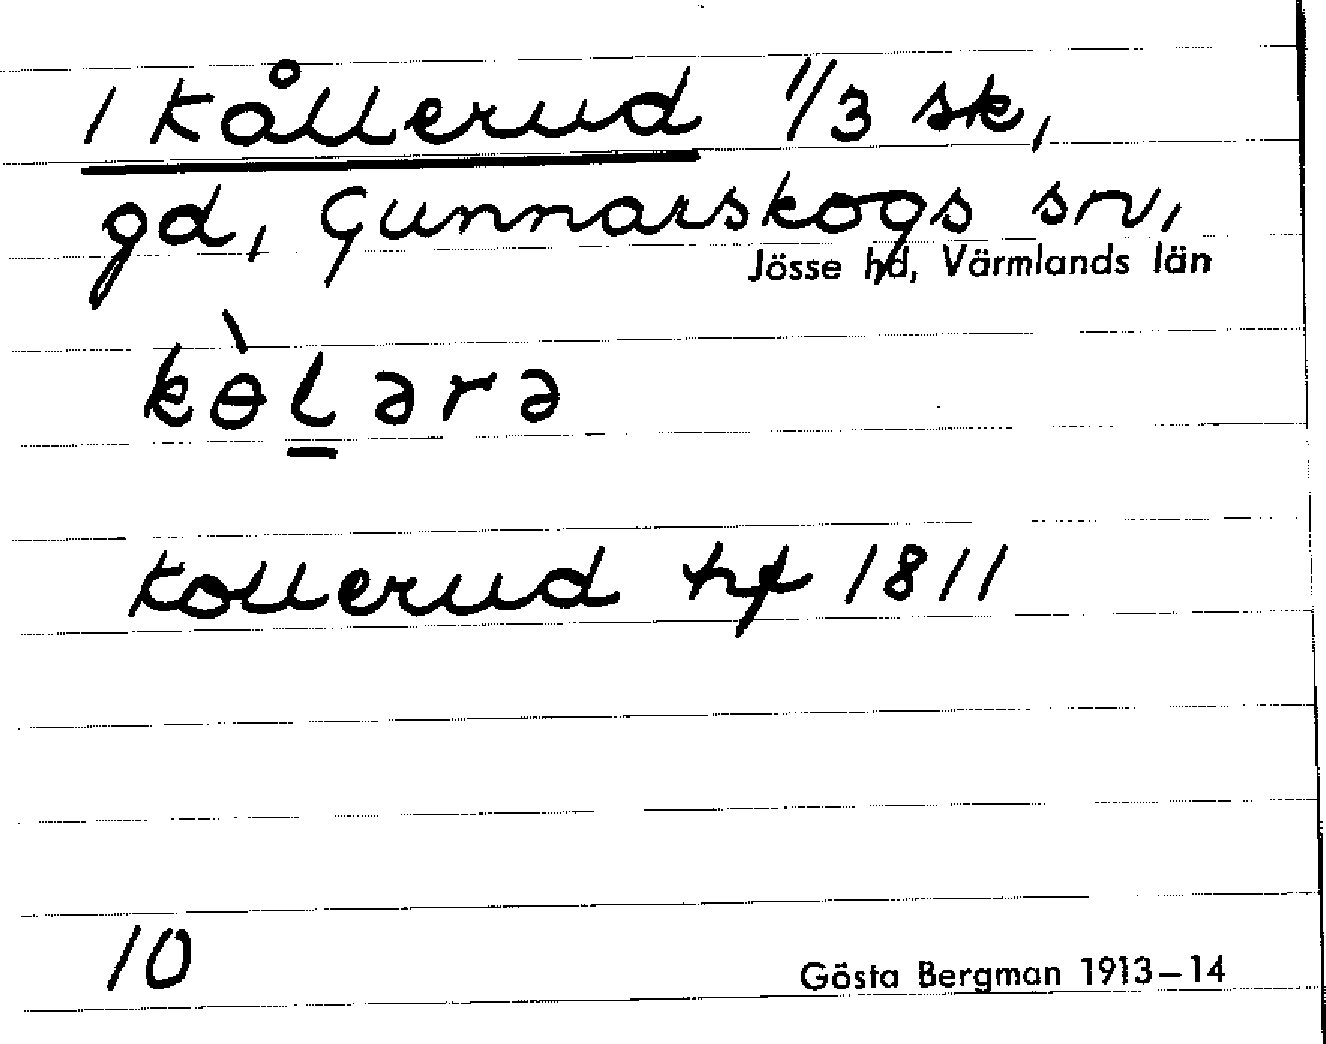 1 Kållerud 11/3 sk,
gd, Gunnarskogs sn,
Jösse hd, Värmlands län
kɵ̀lərə
Kollerud hf 1811
10
Gösta Bergman 1913–14